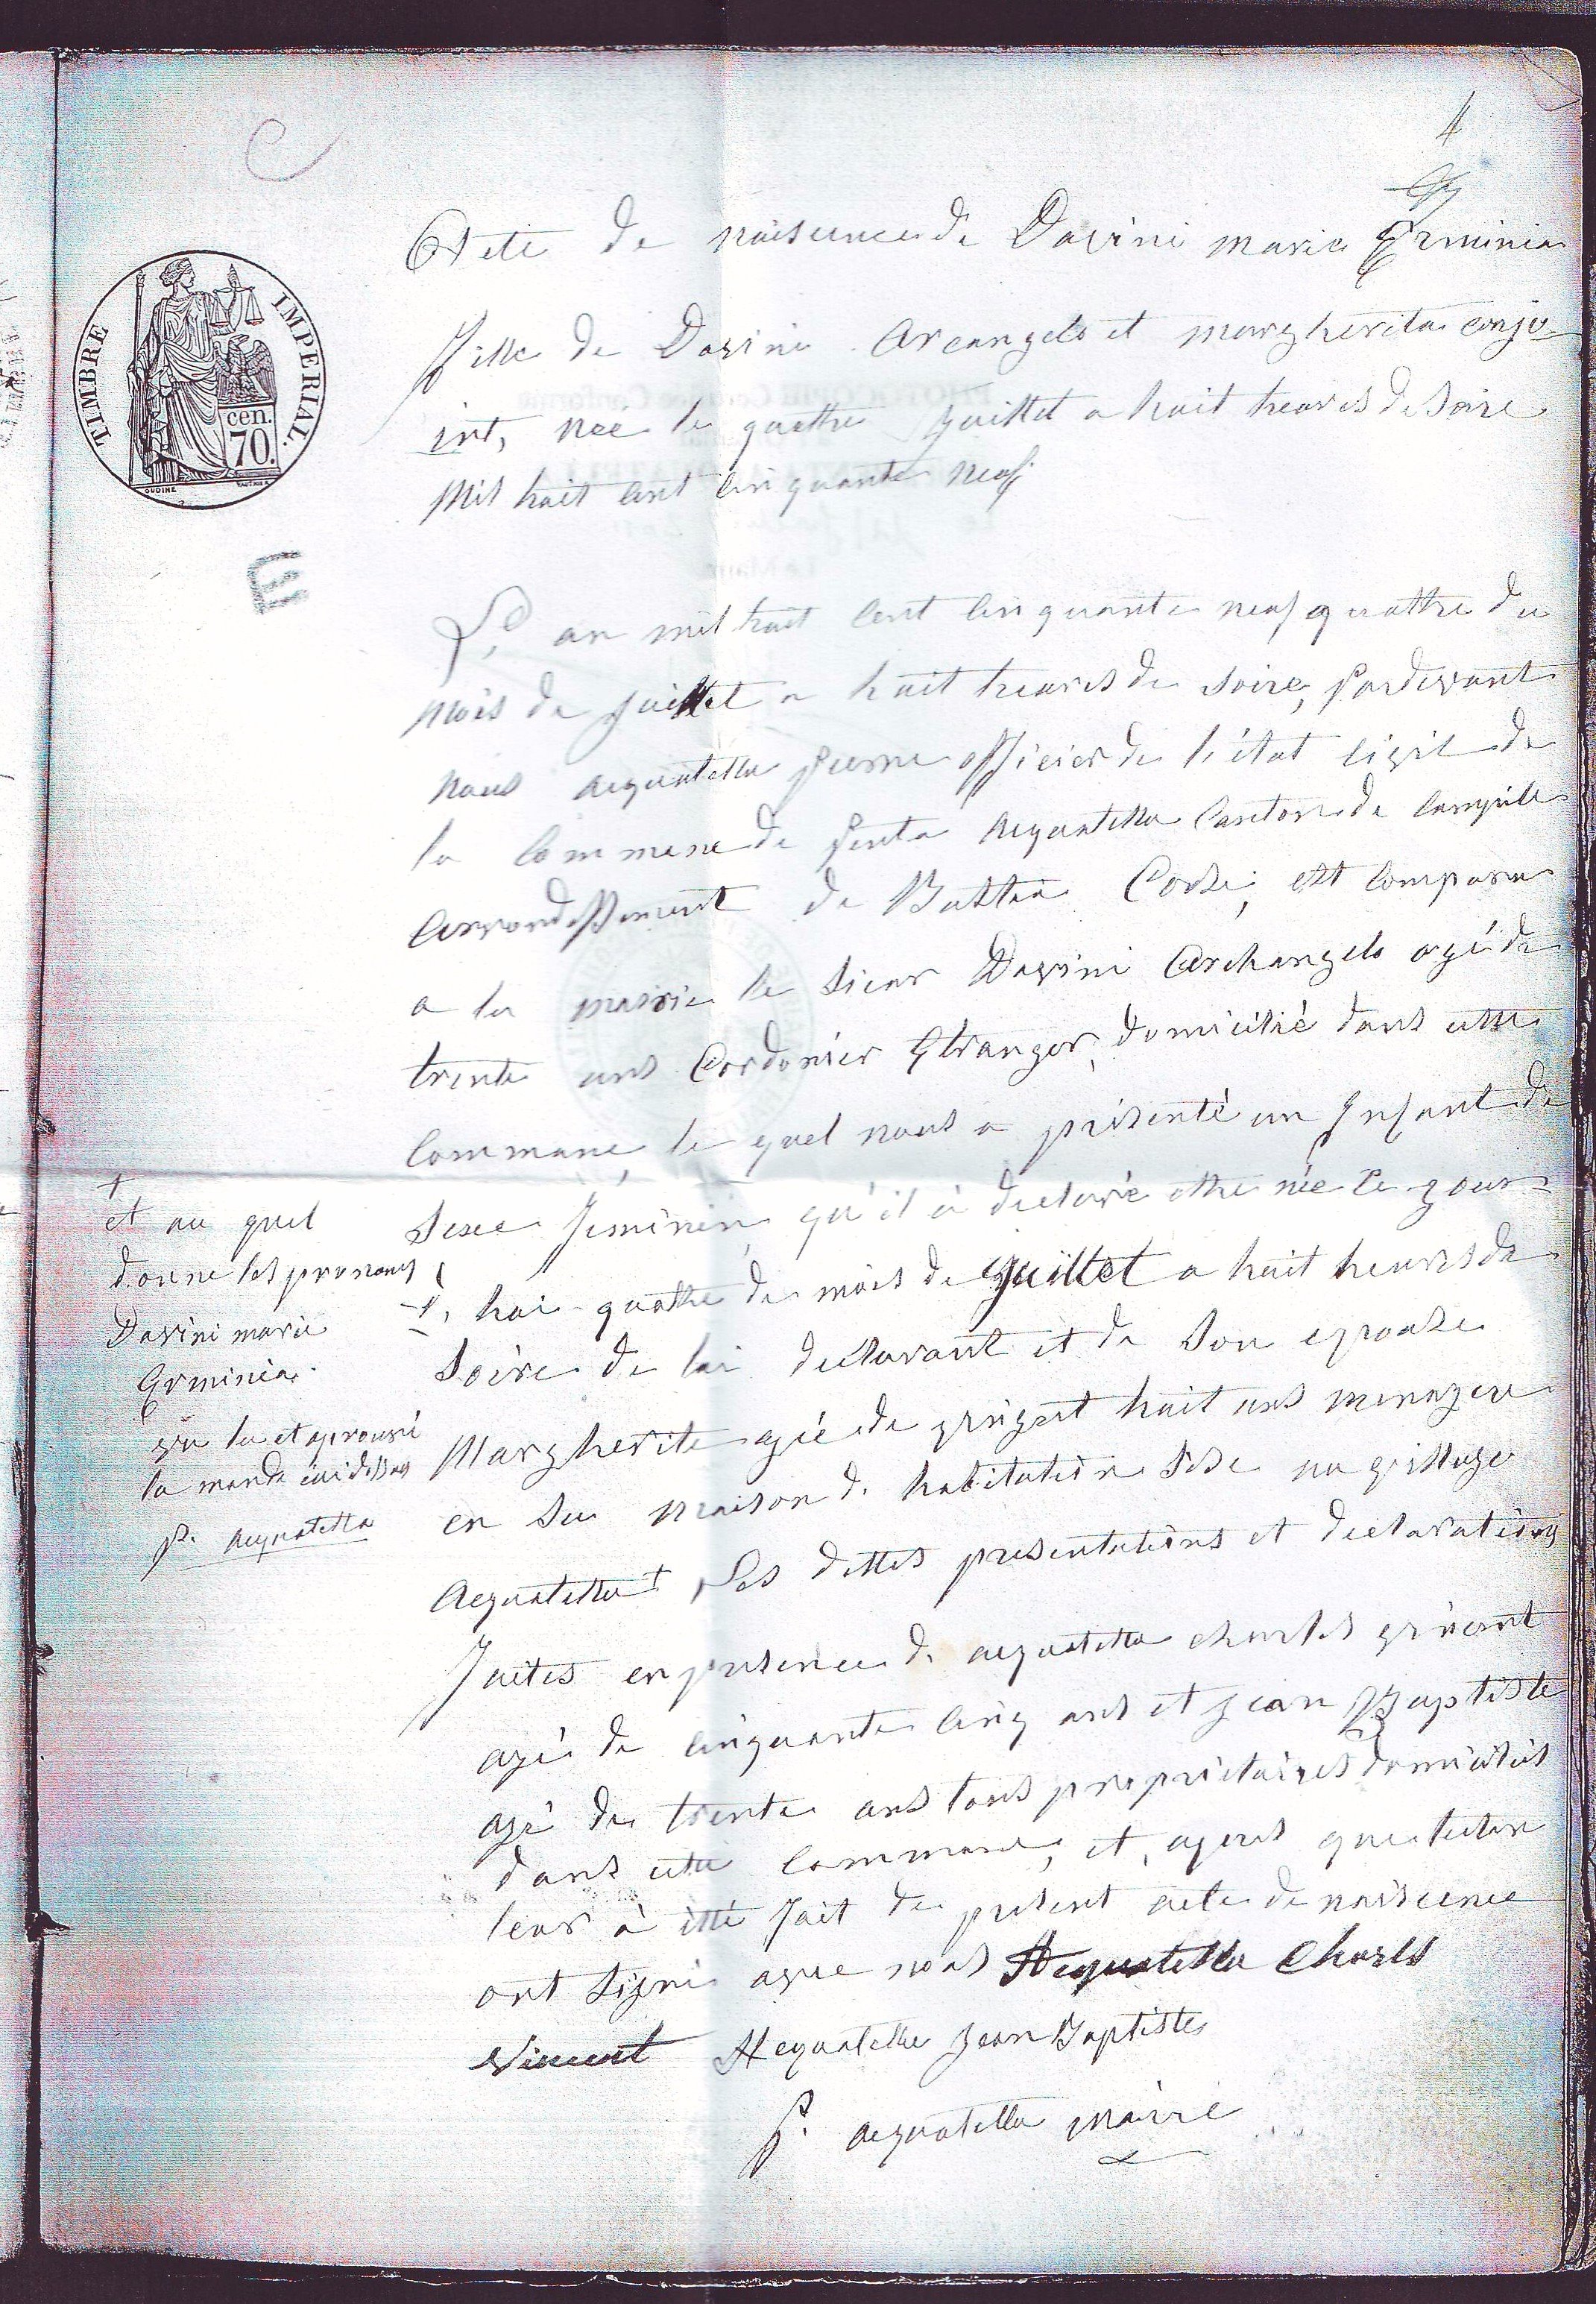 4
Acte de naisence de Davini marie Erminia
fille de Davini Arcangelo et margherita conjo-
int, née le quatre juillet a huit heures de soire
mil huit cent cinquante neuf
L'an mil huit cent cinquante neuf quattre du
mois de juillet a huit heures de soire, pardevant
nous acquatella pierre officier de l'état civil de
la commune de penta acquatella canton de campile
arrondissement de Bastia Corse, est comparu
a la mairie le sieur Davini Archangelo agé de
trente ans Cordonier Etranger, domicilié dans cette
commune, le quel nous a présenté un Enfant de
sexe feminin qu'il a declaré ettre née ce jour
d'hui quattre du mois de juillet a huit heures de
soire de lui declarant et de son epouse
Margherite agé de vingt huit ans menagere
en sa maison d. habitation sise au village
Acquatella + Les dittes presentations et declarations
faites en presence d. acquatella charles vincent
agé de cinquante cinq ans et jean Baptiste
agé de trente ans tous proprietaires domiciliés
dans cette commune, et, apres que lecture
leur à été fait du present acte de naiscence
ont signé avec nous Acquatella Charles
Vincent Acquatella Jean Baptiste
P. acquatella maire
+
et au quel
donne les prenoms
Davini marie
Erminia.
vu lu et aprouvé
P. Acquatella
TIMBRE IMPERIAL.
cen.
70.
OUDINE
E